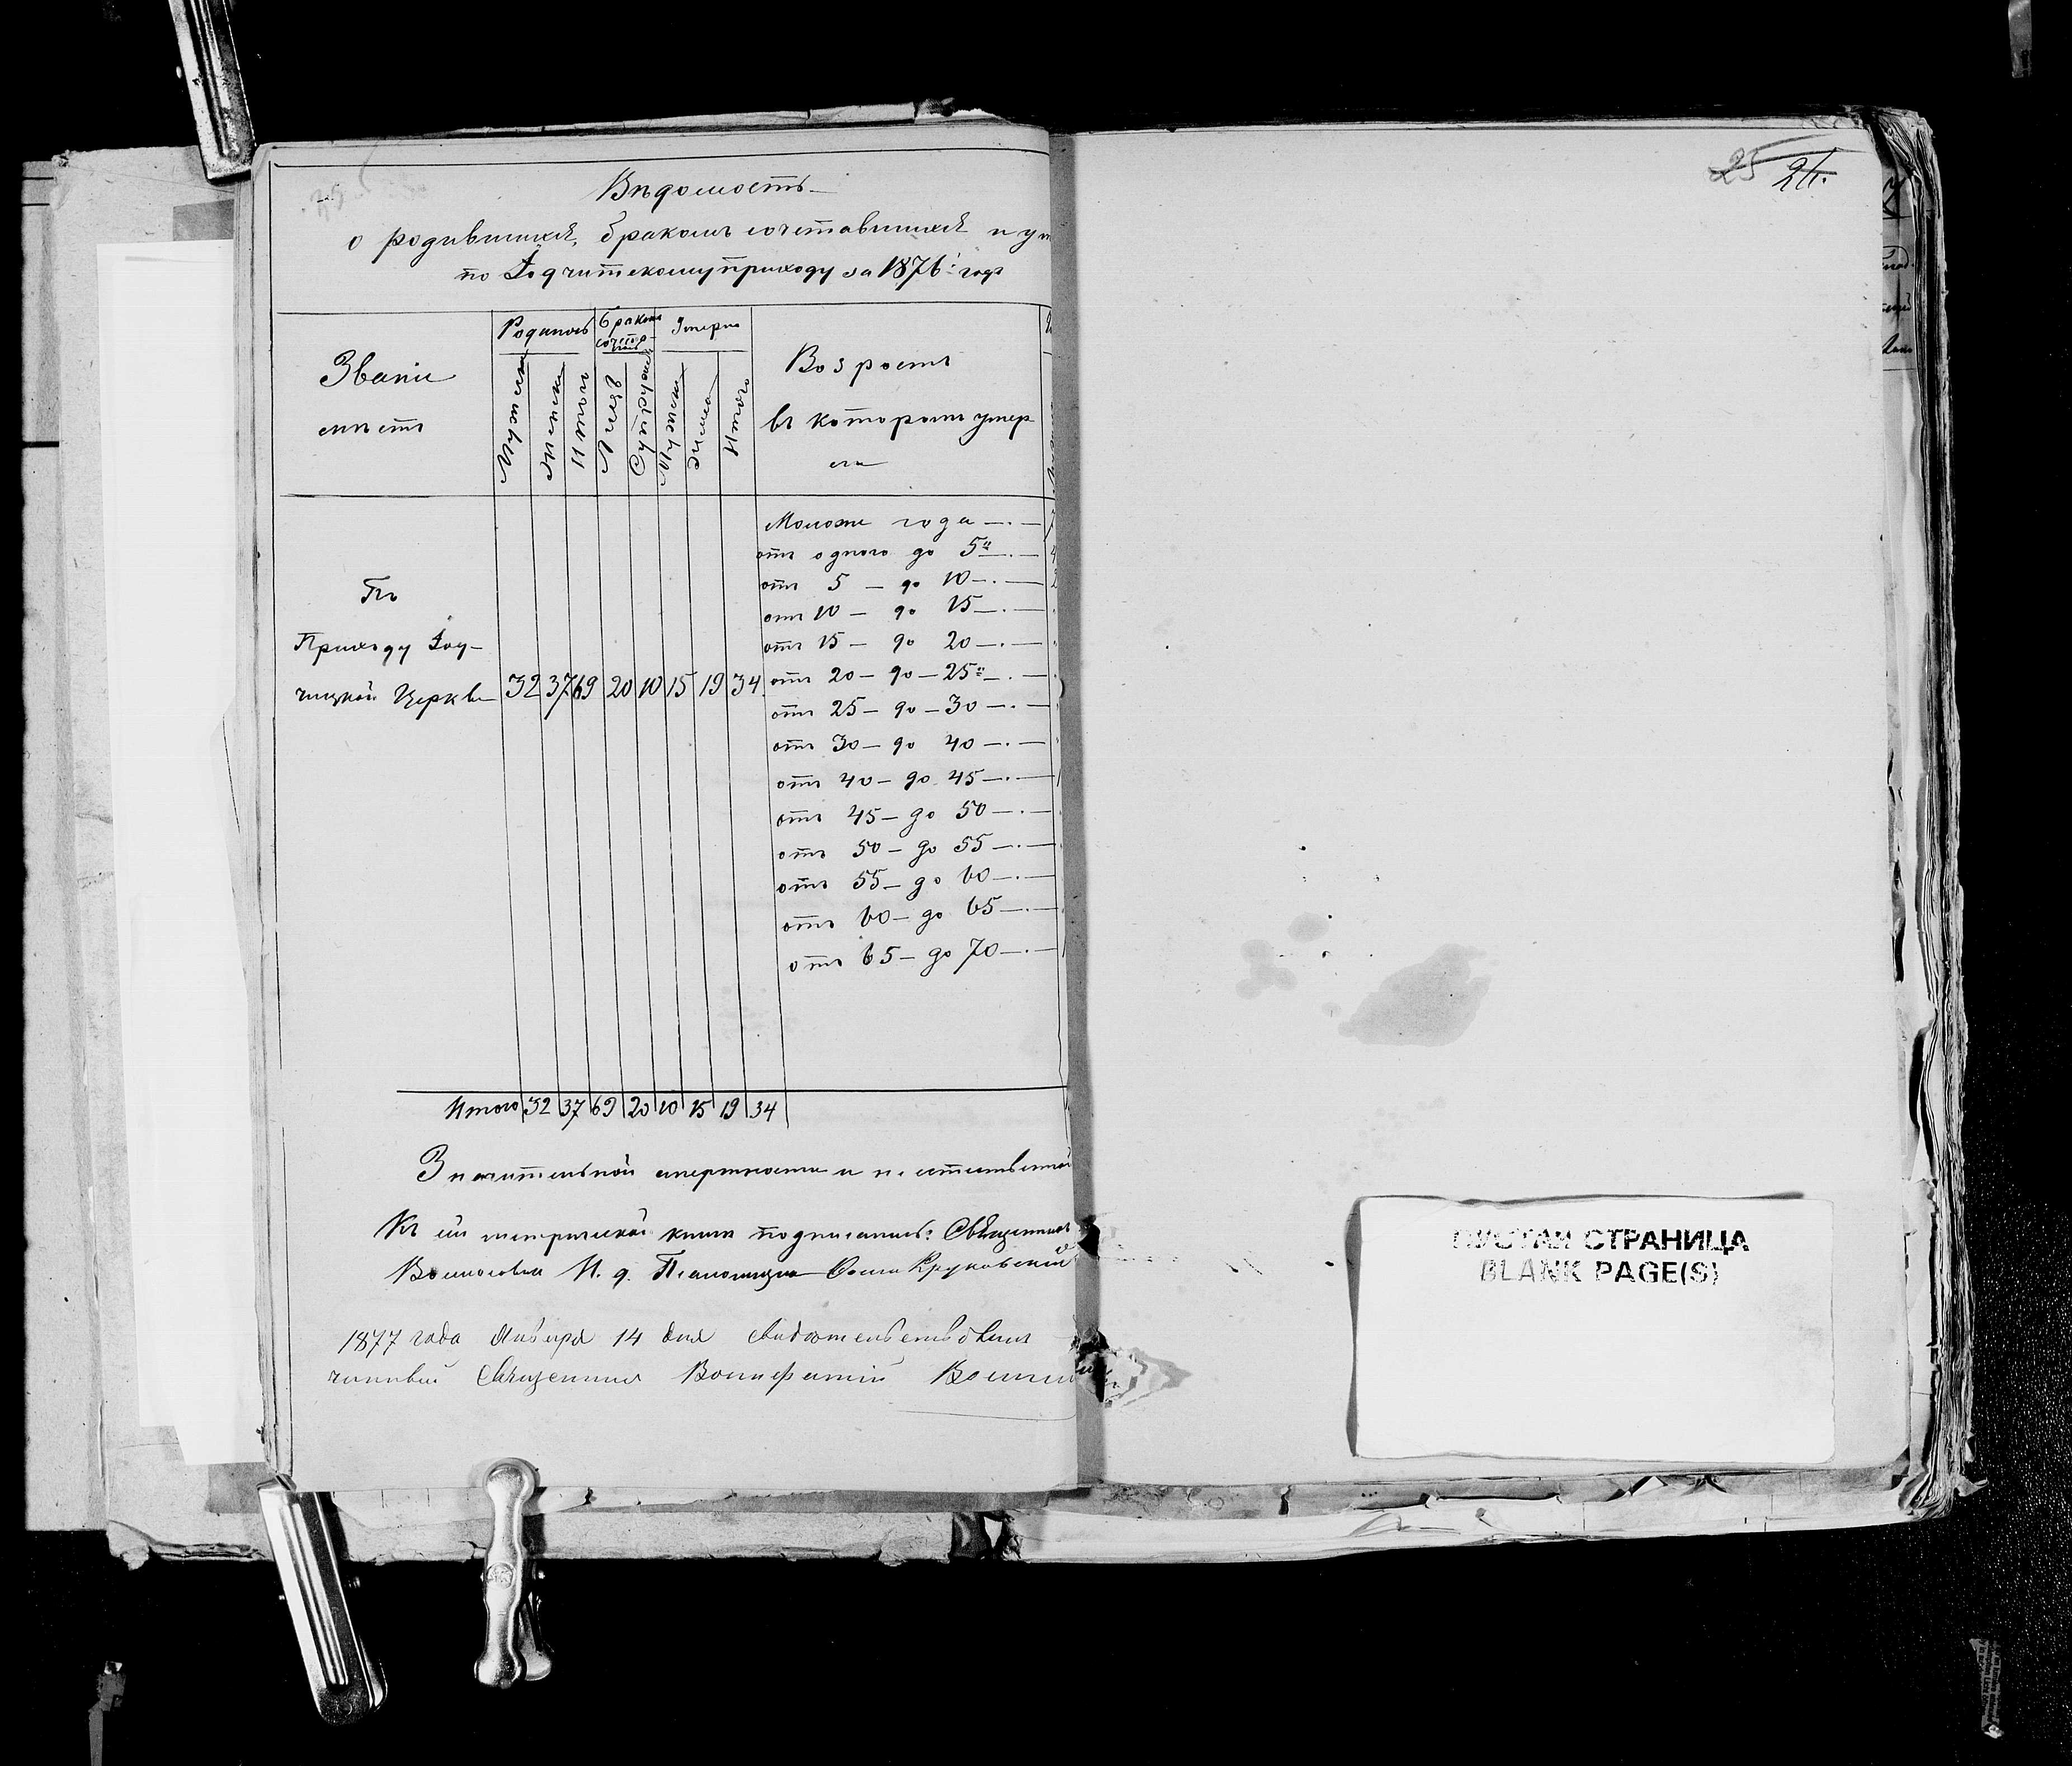 25 26.
Вѣдомость
о родившихся, бракомъ сочетавшихся и ум
по приходу за 1876 годъ
Званіе
мѣстъ
Родилось
Бракомъ
Умерло
Мужеска
Женска
Итого
Лицъ
Супружествъ
Мужеска
Женска
Итого
Возростъ
въ которомъ умер
ли
Моложе года —.—
отъ одного до 5ти —.—
отъ 5 — до 10 —.—
отъ 10 — до 15 —.—
отъ 15 — до 20 —.—
отъ 20 — до — 25ти —.—
отъ 25 — до — 30 —.—
отъ 30 — до 40 —.—
отъ 40 — до 45 —.—
отъ 45 — до 50 —.—
отъ 50 — до 55 —.—
отъ 55 — до 60 —.—
отъ 60 — до 65 —.—
отъ 65 — до 70 —.—
По
Приходу
Церкви 32 37 69 20 10 15 19 34
Итого 32 37 69 20 10 15 19 34
Значительной смертности и не естественной
Къ сей метрической книгѣ подписались: Священникъ
И. д. Псаломщика Круковскій
1877 года Января 14 дня свидѣтельствовалъ
Священникъ Вонифатій
ПУСТАЯ СТРАНИЦА
BLANK PAGE(S)